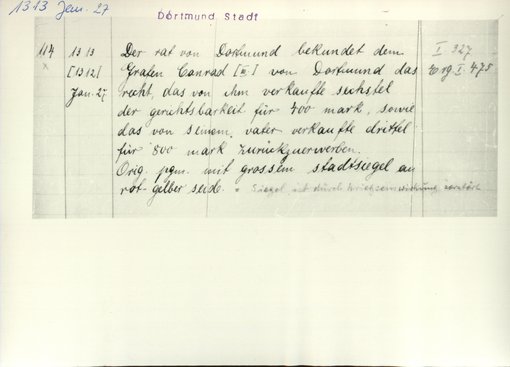 1313 Jan. 27
Dortmund Stadt
114 1313 Der rat von Dortmund bekundet dem I 327
x [1312] Grafen Conrad [III] von Dortmund das Erg. I. 475
Jan. 27 recht, das von ihm verkaufte sechstel
der gerichtsbarkeit für 400 mark, sowie
das von seinem vater verkaufte drittel
für 800 mark zurückzuerwerben.
Orig. pgm. mit grossem stadtsiegel an
rot gelber seide. x Siegel ist durch Kriegseinwirkung zerstört